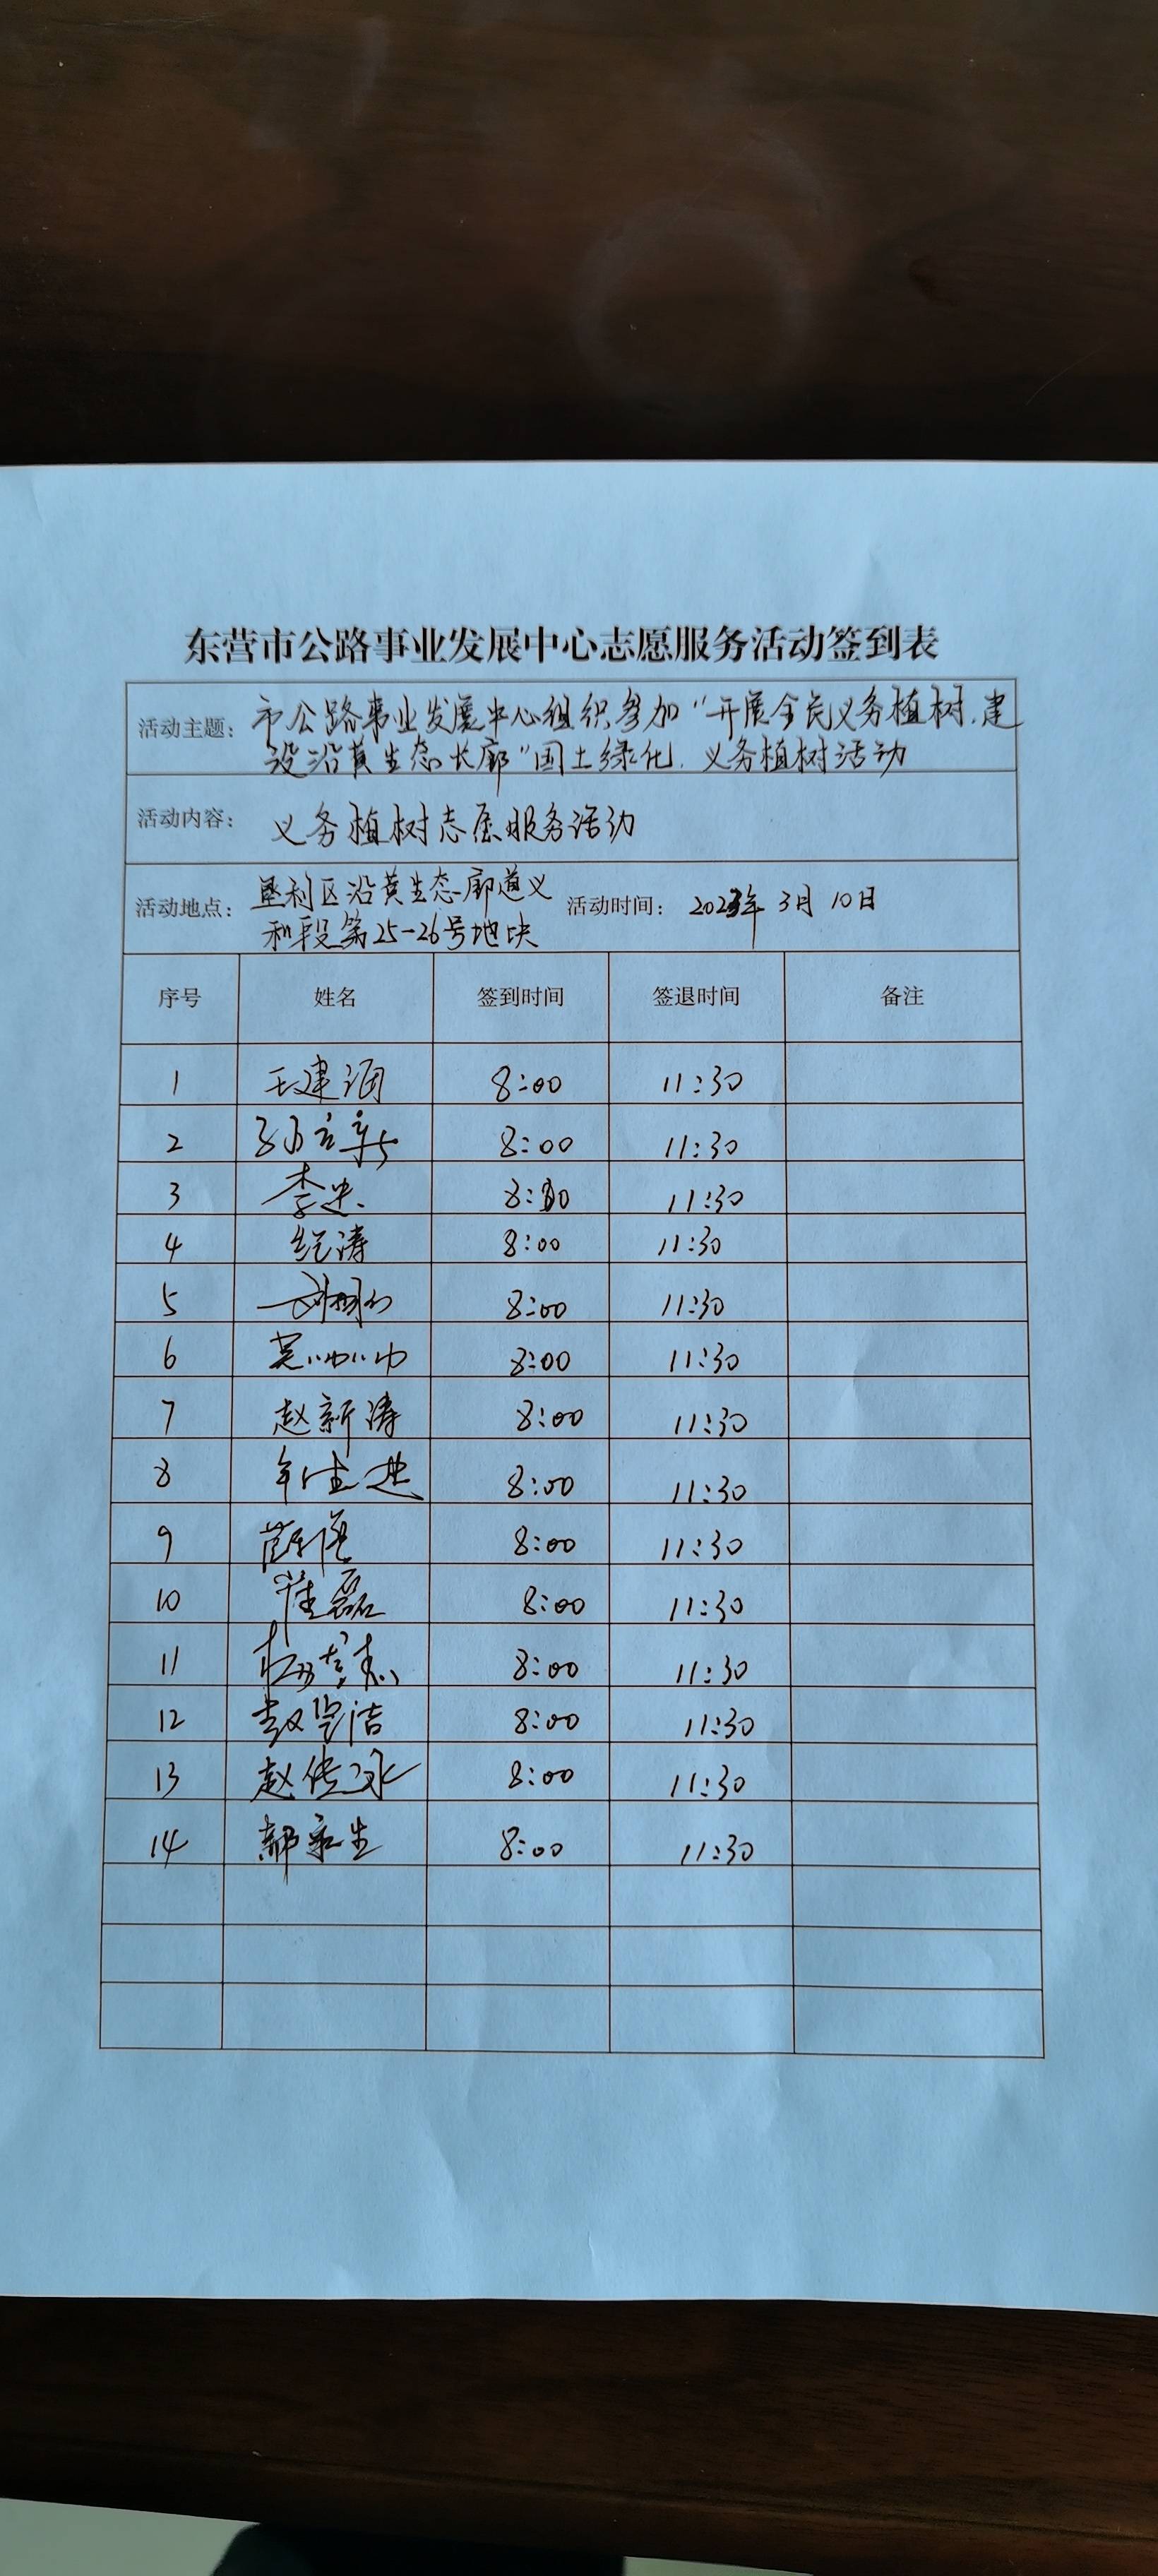 东营市公路事业发展中心志愿服务活动签到表
活动主题： 市公路事业发展中心组织参加“开展全民义务植树，建
设沿黄生态长廊”国土绿化、义务植树活动
活动内容： 义务植树志愿服务活动
活动地点： 垦利区沿黄生态廊道义 活动时间： 2023年 3月 10日
和段第25-26号地块
序号 姓名 签到时间 签退时间 备注
1 王建 8:00 11:30
2 8:00 11:30
3 李忠 8:00 11:30
4 纪涛 8:00 11:30
5 8:00 11:30
6 8:00 11:30
7 赵新涛 8:00 11:30
8 8:00 11:30
9 8:00 11:30
10 崔磊 8:00 11:30
11 8:00 11:30
12 洁 8:00 11:30
13 赵传 8:00 11:30
14 生 8:00 11:30